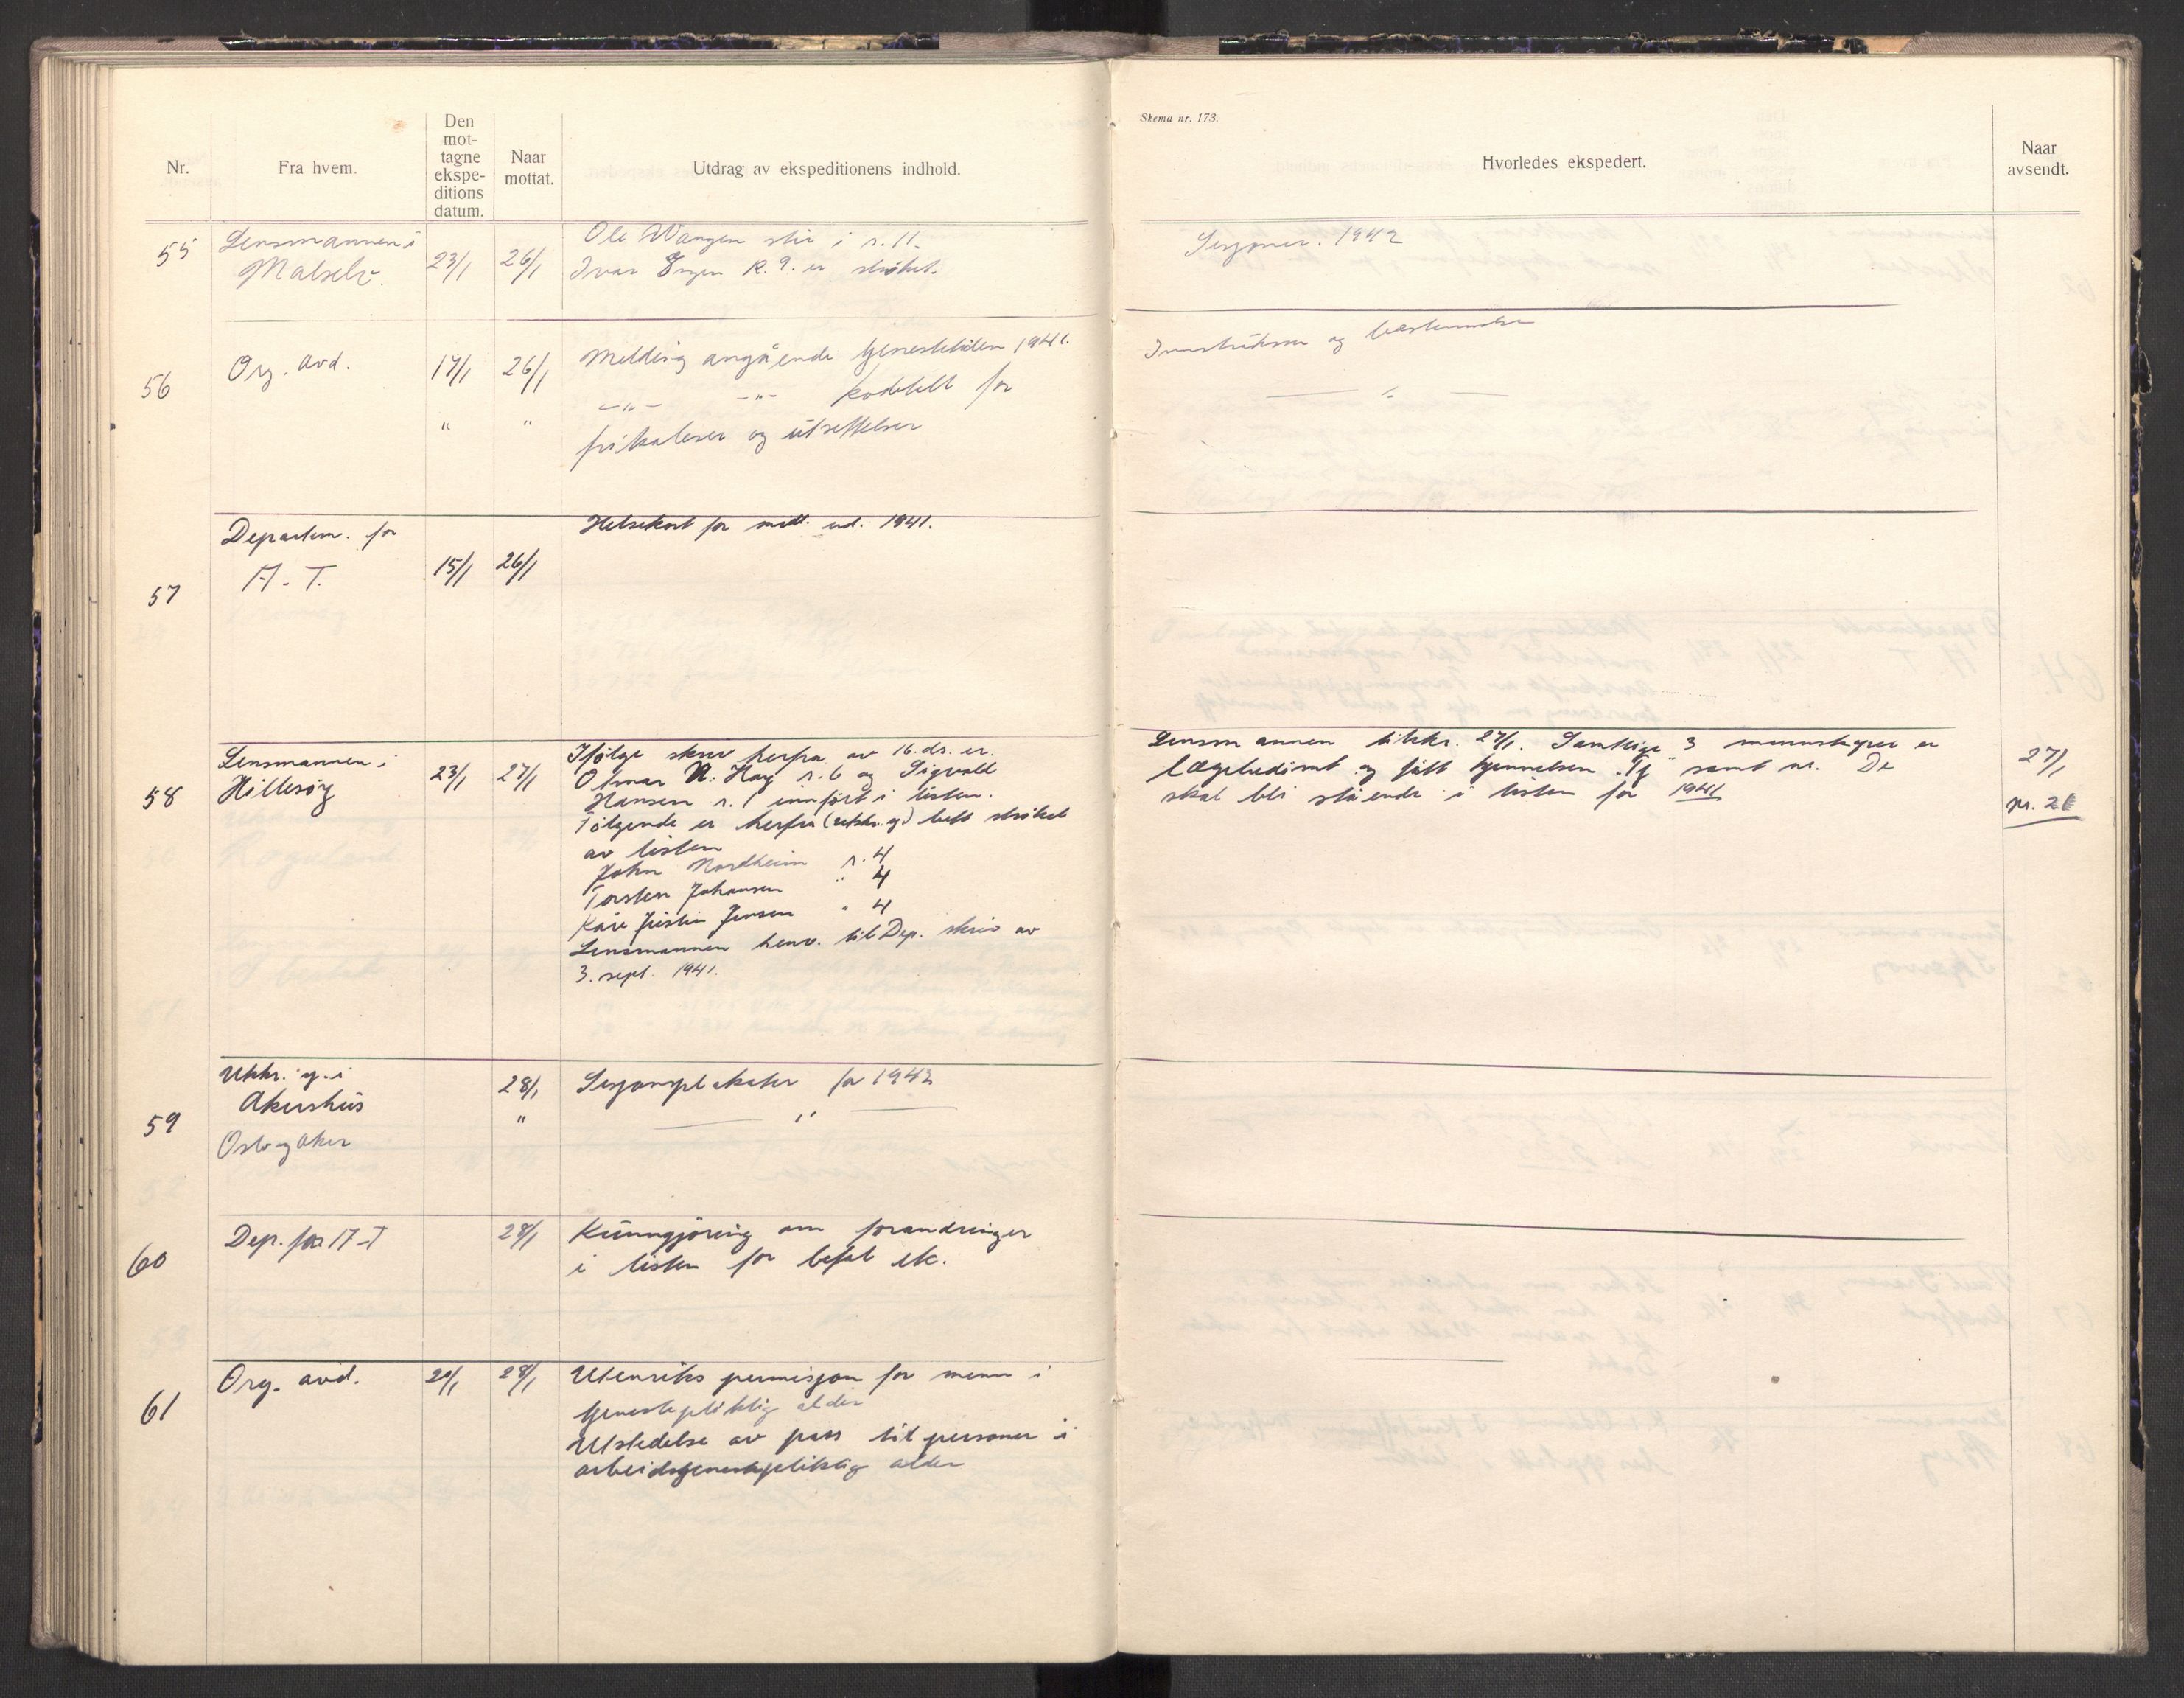 Nr.
Fra hvem.
Den
mot-
tagne
ekspe-
ditions
datum.
Naar
mottat.
Utdrag av ekspeditionens indhold.
Skema nr. 173.
Hvorledes ekspedert.
Naar
avsendt.
55
Lensmannen i
Målselv.
23/1
26/1
Ole Wangen står i r. 11.
Ivar Engen R. 9. er strøket.
Sesjoner. 1942
56
Org. avd.
17/1
26/1
Melding angående tjenestetiden 1941.
-"- -"- for
"
"
og utsettelser
Instruksen og bestemmelser
"
57
Departem. for
A. T.
15/1
26/1
Helsekort for 1941.
58
Lensmannen i
Hillesøy
23/1
27/1
Ifølge skriv herfra av 16. ds. er.
Otmar N. Hay r. 6 og Sigvald
Hansen r. 1 innført i listen.
Følgende er herfra (utskr. g.) bett strøket
av listen
John Nordheim r. 4
Torsten Johansen " 4
Kåre Justin Jensen " 4
Lensmannen henv. til Dep. skriv av
3. sept. 1941.
Lensmannen tilskr. 27/1. Samtlige 3 er
lægebedømt og fått kjennelsen "Tj" samt nr. De
skal bli stående i listen for 1941
27/1
nr. 21
59
Utskr. g. i
Akershus
Oslo og Aker
28/1
"
Sesjonsplakater for 1942
"
60
Dep. for A-T
28/1
Kunngjøring om forandringer
i listen for befal etc.
61
Org. avd.
20/1
28/1
Utenriks permisjon for menn i
tjenestepliktig alder
Utstedelse av pass til personer i
arbeidstjenestepliktig alder